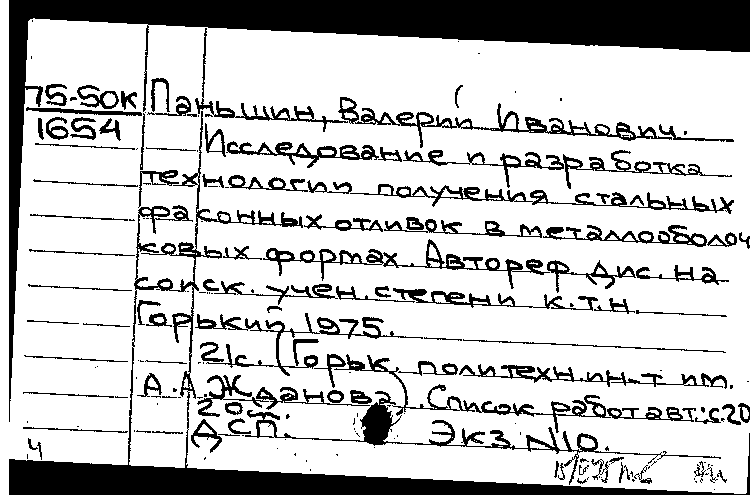 75-50к Паньшин, Валерий Иванович.
1654
Исследование и разработка
технологии получения стальных
фасонных отливок в металлооболоч
ковых формах. Автореф. дис. на
соиск. учен. степени к.т.н.
Горький, 1975.
21с. (Горьк. политехн. ин-т им.
А.А. Жданова). Список работ авт.: с.20
ДСП. Экз. N10.
ч